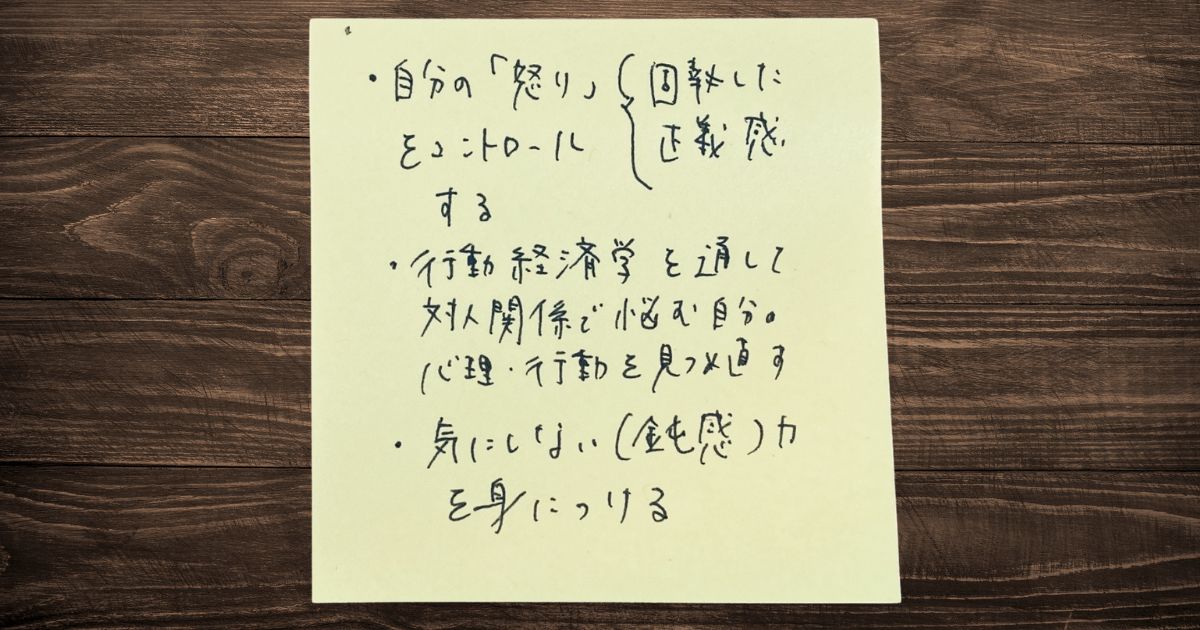 ・自分の「怒り」{固執した
をコントロール 正義感
する
・行動経済学を通して
対人関係で悩む自分。
心理・行動を見つめ直す
・気にしない(鈍感)力
を身につける